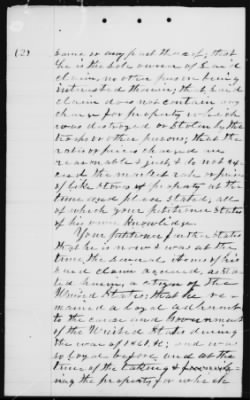 (2)
same or any part thereof; that
he is the sole owner of said
claim, no other person being
interested therein; that said
claim does not contain any
charge for property which
was destroyed or stolen by the
troops or other persons; that the
rates or prices charged are
reasonable & just & do not ex-
ceed the market rate or price
of like stores & property at the
time and place stated, all
of which your petitioner states
of his own knowledge.
Your petitioner further states
that he is now & was at the
time the several items of his
said claim accrued, as sta-
ted herein, a citizen of the
United States; that he re-
mained a loyal adherent
to the cause and Government
of the United States during
the war of 1861, &c; and was
so loyal before and at the
time of the taking & furnish-
ing the property, for which